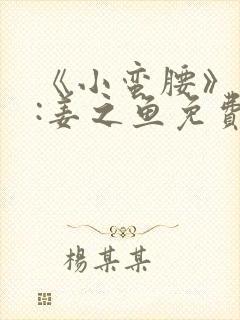 《小蛮腰》
:姜之鱼免費
楊某某